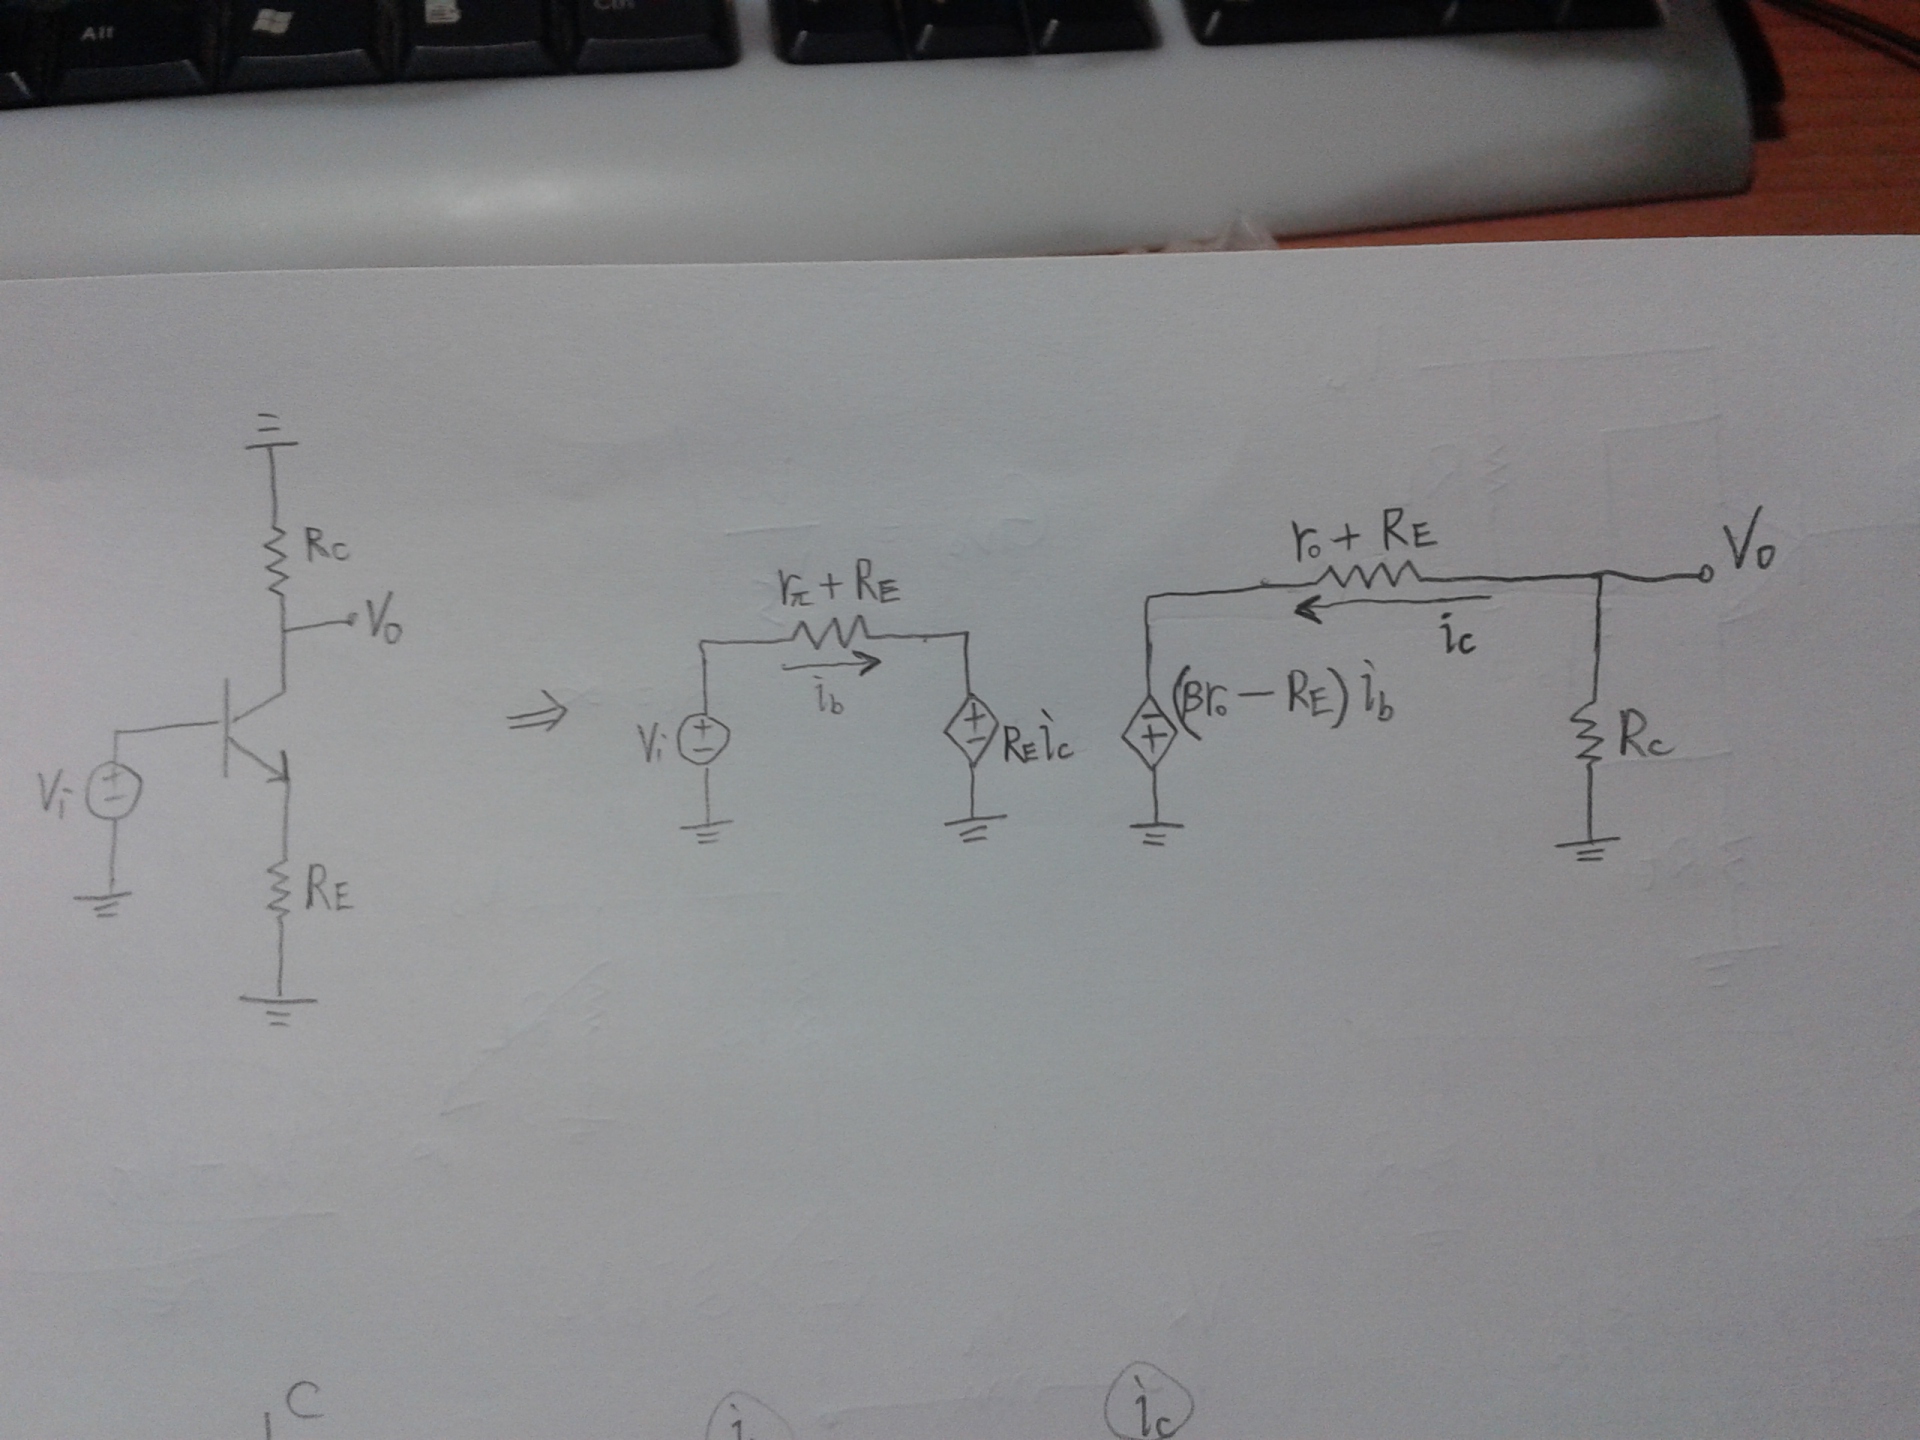 Alt
Ctrl
Rc
Vo
Vi
RE
⇒
rπ + RE
ib
Vi
+
−
RE ic
ro + RE
Vo
ic
(βro − RE) ib
Rc
C
ic